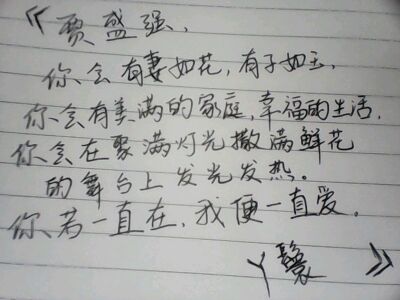 《贾盛强,
你会有妻如花,有子如玉,
你会有美满的家庭,幸福的生活,
你会在聚满灯光撒满鲜花
的舞台上发光发热。
你若一直在,我便一直爱。
丫鬟》